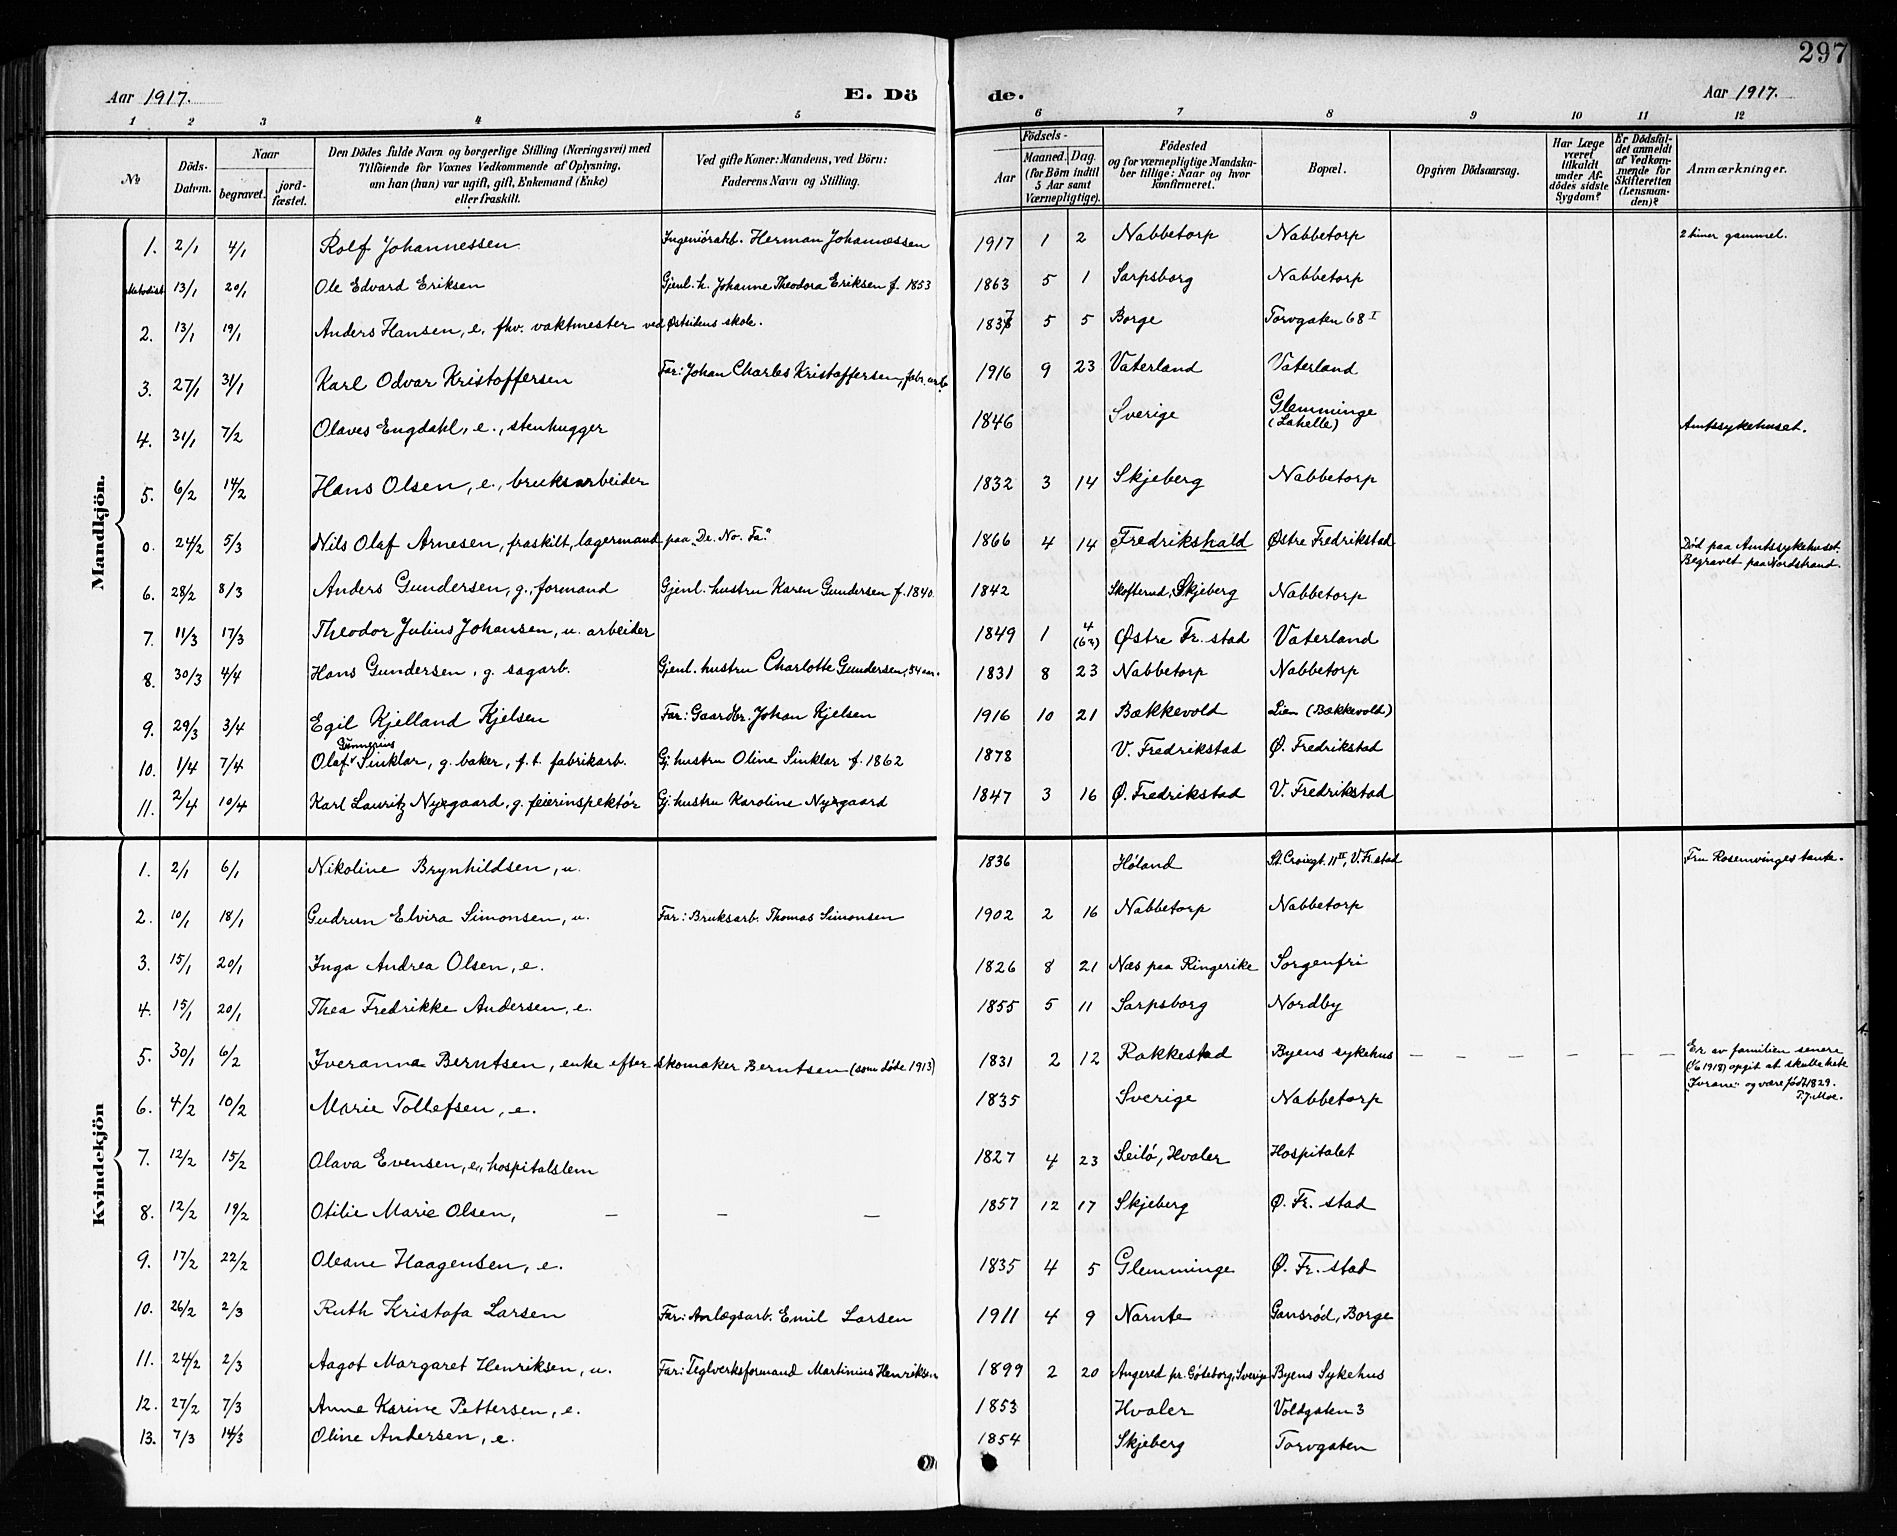 297
Aar 1917. E. Dö de. Aar 1917.
1 2 3 4 5 6 7 8 9 10 11 12
No. Döds-Datum. Naar begravet. jordfæstet. Den Dödes fulde Navn og borgerlige Stilling (Næringsvei) med Tilföiende for Voxnes Vedkommende af Oplysning, om han (hun) var ugift, gift, Enkemand (Enke) eller fraskilt. Ved gifte Koner: Mandens, ved Börn: Faderens Navn og Stilling. Födsels- Aar Maaned. Dag. (for Börn indtil 5 Aar samt Værnepligtige). Födested og for værnepligtige Mandskaber tillige: Naar og hvor konfirmeret. Bopæl. Opgiven Dödsaarsag. Har Læge været tilkaldt under Afdödes sidste Sygdom? Er Dödsfaldet anmeldt af Vedkommende for Skifteretten (Lensmanden)? Anmærkninger.
Mandkjön.
1. 2/1 4/1 Rolf Johannessen Ingeniörarb. Herman Johannessen 1917 1 2 Nabbetorp Nabbetorp 2 timer gammel.
Metodist 13/1 20/1 Ole Edvard Eriksen Gjenl. h. Johanne Theodora Eriksen f. 1853 1863 5 1 Sarpsborg Nabbetorp
2. 13/1 19/1 Anders Hansen, e. fhv. vaktmester ved Østsidens skole. 1837 5 5 Borge Torvgaten 68 I
3. 27/1 31/1 Karl Odvar Kristoffersen Far: Johan Charles Kristoffersen, fabr. arb. 1916 9 23 Vaterland Vaterland
4. 31/1 7/2 Olaves Engdahl, e., stenhugger 1846 Sverige Glemminge (Lahelle) Amtssykehuset.
5. 6/2 14/2 Hans Olsen, e., bruksarbeider 1832 3 14 Skjeberg Nabbetorp
0. 24/2 5/3 Nils Olaf Arnesen, fraskilt, lagermand paa „De. No. Fa." 1866 4 14 Fredrikshald Østre Fredrikstad Död paa Amtssykehuset. Begravet paa Nordstrand.
6. 28/2 8/3 Anders Gundersen, g., formand Gjenl. hustru Karen Gundersen f. 1840. 1842 Skofterud, Skjeberg Nabbetorp
7. 11/3 17/3 Theodor Julius Johansen, u. arbeider 1849 1 4 (63) Østre Fr. stad Vaterland
8. 30/3 4/4 Hans Gundersen, g. sagarb. Gjenl. hustru Charlotte Gundersen, 84 aar. 1831 8 23 Nabbetorp Nabbetorp
9. 29/3 3/4 Egil Kjelland Kjelsen Far: Gaardbr. Johan Kjelsen 1916 10 21 Bækkevold Lien (Bækkevold)
10. 1/4 7/4 Olaf Gunnerius Sinklar, g. baker, f. t. fabrikarb. Gj. hustru Oline Sinklar f. 1862 1878 V. Fredrikstad Ø. Fredrikstad
11. 2/4 10/4 Karl Lauritz Nygaard, g. feierinspektör Gj. hustru Karoline Nygaard 1847 3 16 Ø. Fredrikstad V. Fredrikstad
Kvindekjön
1. 2/1 6/1 Nikoline Brynhildsen, u. 1836 Höland St. Croixgt. 11 II, V. Fr. stad Fru Rosenvinges tante.
2. 10/1 18/1 Gudrun Elvira Simonsen, u. Far: Bruksarb. Thomas Simonsen 1902 2 16 Nabbetorp Nabbetorp
3. 15/1 20/1 Inga Andrea Olsen, e. 1826 8 21 Næs paa Ringerike Sorgenfri
4. 15/1 20/1 Thea Fredrikke Andersen, e. 1855 5 11 Sarpsborg Nordby
5. 30/1 6/2 Iveranna Berntsen, enke efter skomaker Berntsen (som döde 1913) 1831 2 12 Rakkestad Byens sykehus – – – – – Er av familien senere (1/6 1918) opgit at skulle hete Ivrane og være född 1829. T. J. Moe.
6. 4/2 10/2 Marie Tollefsen, e. 1835 Sverige Nabbetorp
7. 12/2 15/2 Olava Evensen, e., hospitalslem 1827 4 23 Seilö, Hvaler Hospitalet
8. 12/2 19/2 Otilie Marie Olsen, – – – 1857 12 17 Skjeberg Ø. Fr. stad
9. 17/2 22/2 Oleane Haagensen, e. 1835 4 5 Glemminge Ø. Fr. stad
10. 26/2 2/3 Ruth Kristofa Larsen Far: Anlægsarb. Emil Larsen 1911 4 9 Narnte Gansröd, Borge
11. 24/2 2/3 Aagot Margaret Henriksen, u. Far: Teglverksformand Martinius Henriksen 1899 2 20 Angered pr. Göteborg, Sverige Byens Sykehus
12. 27/2 7/3 Anne Karine Pettersen, e. 1853 Hvaler Voldgaten 3
13. 7/3 14/3 Oline Andersen, e. 1854 Skjeberg Torvgaten